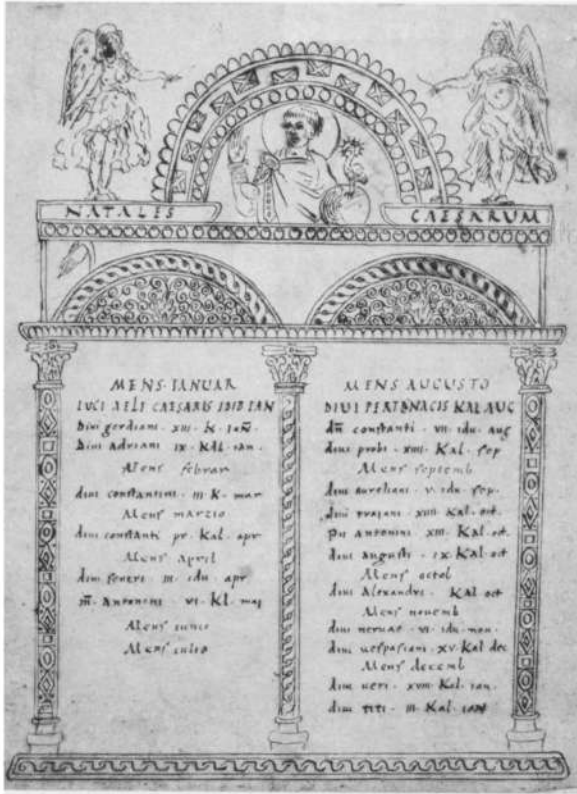 NATALES CAESARUM
MENS·IANUAR
LUCI AELI CAESARIS IDIB IAN
Divi gordiani · xiii · K · iañ
Divi adriani ix · KAL · ian ·
Mens februar
divi constantini · iii · K · mar
Mens marzio
divi constanti pr · Kal · apr
Mens April
divi seueri · iii · idu · apr
m̄ · Antonini · vi · Kl · mai
Mens iunio
Mens iulio
MENS AUGUSTO
DIUI PERTENACIS KAL AUG
dñ constanti · vii · idu · aug
diui probi · xiiii · Kal · sep
Mens septemb
diui aureliani · v · idu · sep ·
diui traiani · xiiii · Kal · oct ·
pii antonini · xiii · Kal · oct ·
diui augusti · ix · Kal · oct
Mens octob
diui Alexandri · Kal oct
Mens nouemb
diui neruae · vi · idu · nou ·
diui uespasiani · xv · Kal dec
Mens decemb
diui ueri · xviii · Kal · ian ·
diui titi · iii · Kal · ian